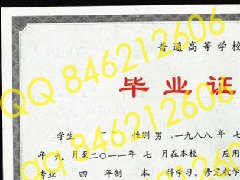 普通高等学校
毕业证
学生 性别 男，一九八八年七
年九月至二〇一一年七月在本校 应用
专业 四年制 本科学习，修完教学
QQ 846212606
QQ 846212606